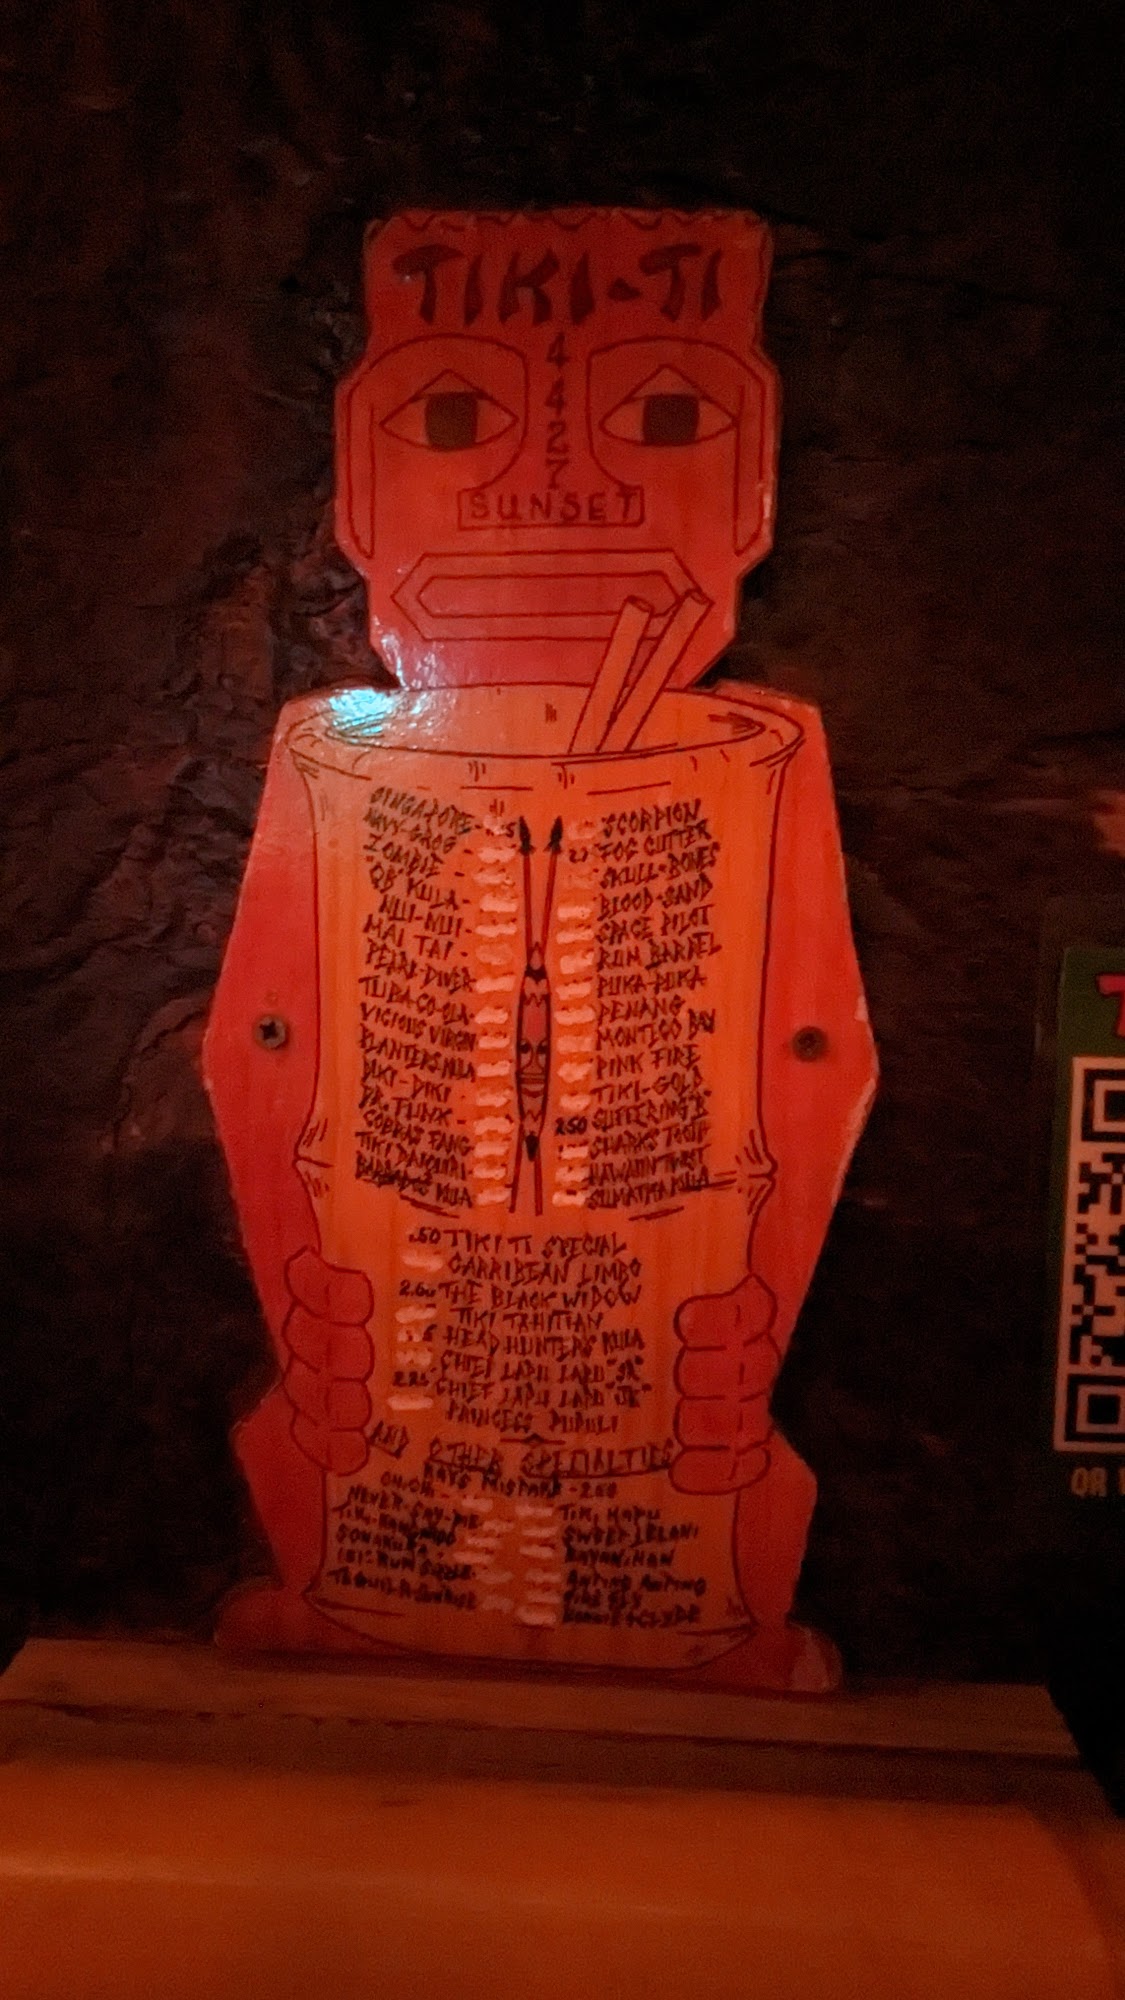 TIKI-TI
4
4
2
7
SUNSET
SINGAPORE-
NAVY-GROG-
ZOMBIE -
"QB" KULA-
NUI-NUI-
MAI TAI -
PEARL-DIVER
TUBA-CO-OLA-
VICIOUS VIRGIN
PLANTERS
DIKI-DIKI -
DR. FUNK -
COBRAS FANG
TIKI DAIQUIRI
BARBADOS KULA
SCORPION
FOG CUTTER
SKULL-BONES
BLOOD-SAND
SPACE PILOT
RUM BARREL
PUKA-PUKA
PENANG
MONTEGO BAY
PINK FIRE
TIKI-GOLD
2.50 SUFFERING "B"
SHARKS TOOTH
SUMATRA KULA
.50 TIKI TI SPECIAL
CARRIBEAN LIMBO
THE BLACK WIDOW
TIKI TAHITIAN
HEAD HUNTERS KULA
CHIEF LAPU LAPU "SR"
CHIEF LAPU LAPU "JR"
PRINCESS PUPULI
AND OTHER SPECIALTIES
RAYS MISTAKE -
NEVER-SAY-DIE
TIKI KAPU
SWEET LELANI
BAYANIHAN
ANTING ANTING
BONNIE & CLYDE
OR